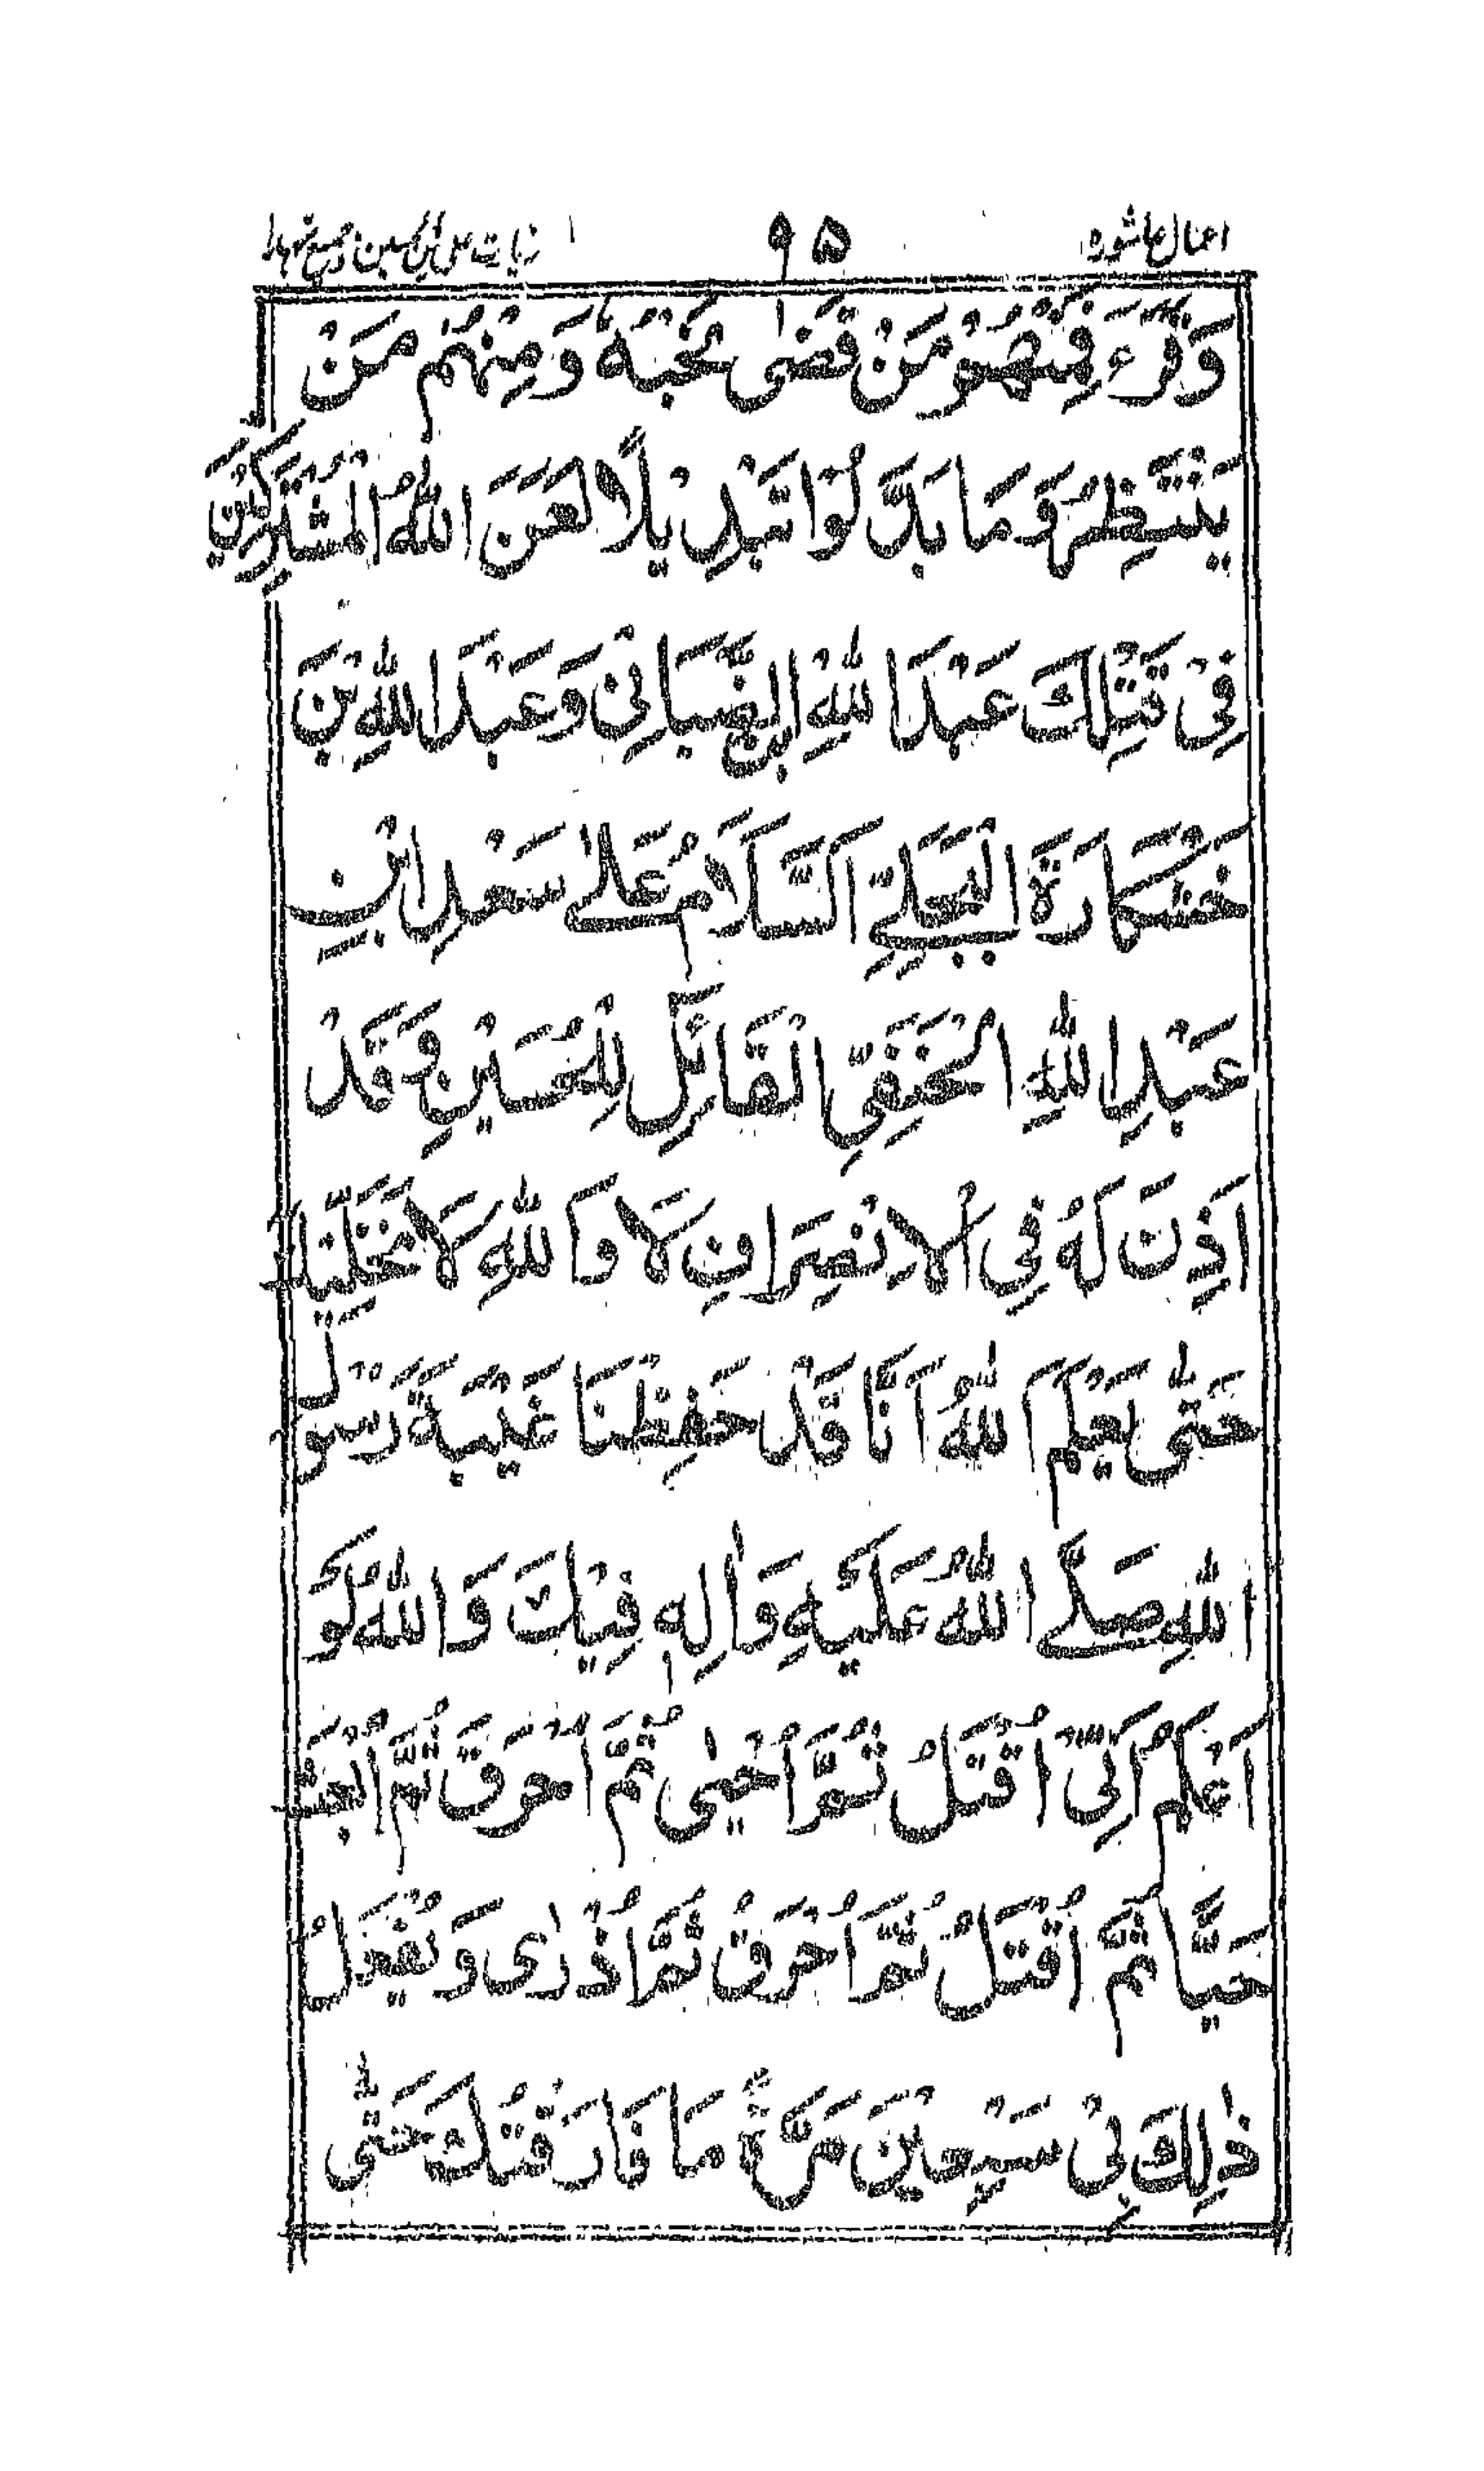 اعمال عاشوره ۹۵ زیارت علی بن الحسین و جمیع شہدا
وَقَرَءَ فَمِنْهُمْ مَنْ قَضٰى نَحْبَهٗ وَمِنْهُمْ مَنْ
يَنْتَظِرُ وَمَا بَدَّلُوْا تَبْدِيْلًا لَعَنَ اللهُ الْمُشْتَرِكِيْنَ
فِىْ قَتْلِكَ عَبْدَ اللهِ الضَّبَابِىَّ وَعَبْدَ اللهِ بْنَ
خَشْكَارَةَ الْبَجَلِىَّ اَلسَّلَامُ عَلٰى سَعْدِ ابْنِ
عَبْدِ اللهِ الْحَنَفِىِّ الْقَائِلِ لِلْحُسَيْنِ وَقَدْ
اَذِنَ لَهٗ فِى الْاِنْصِرَافِ لَا وَاللهِ لَا نُخَلِّيْكَ
حَتّٰى يَعْلَمَ اللهُ اَنَّا قَدْ حَفِظْنَا غَيْبَةَ رَسُوْلِ
اللهِ صَلَّى اللهُ عَلَيْهِ وَاٰلِهٖ فِيْكَ وَاللهِ لَوْ
اَعْلَمُ اَنِّىْ اُقْتَلُ ثُمَّ اُحْيٰى ثُمَّ اُحْرَقُ ثُمَّ اُبْعَثُ
حَيًّا ثُمَّ اُقْتَلُ ثُمَّ اُحْرَقُ ثُمَّ اُذْرٰى وَيُفْعَلُ
ذٰلِكَ بِىْ سَبْعِيْنَ مَرَّةً مَا فَارَقْتُكَ حَتّٰى